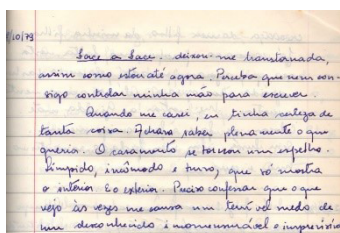 1/10/79
Face a Face. deixou-me transtornada,
assim como estou até agora. Perceba que nem con-
sigo controlar minha mão para escrever.
Quando me casei, eu tinha certeza de
tanta coisa. Achava saber plenamente o que
queria. O casamento se tornou um espelho.
Límpido, incômodo e turvo, que só mostra
o interior e o exterior. Preciso confessar que o que
vejo às vezes me causa um terrível medo de
um desconhecido imensurável e imprevisível